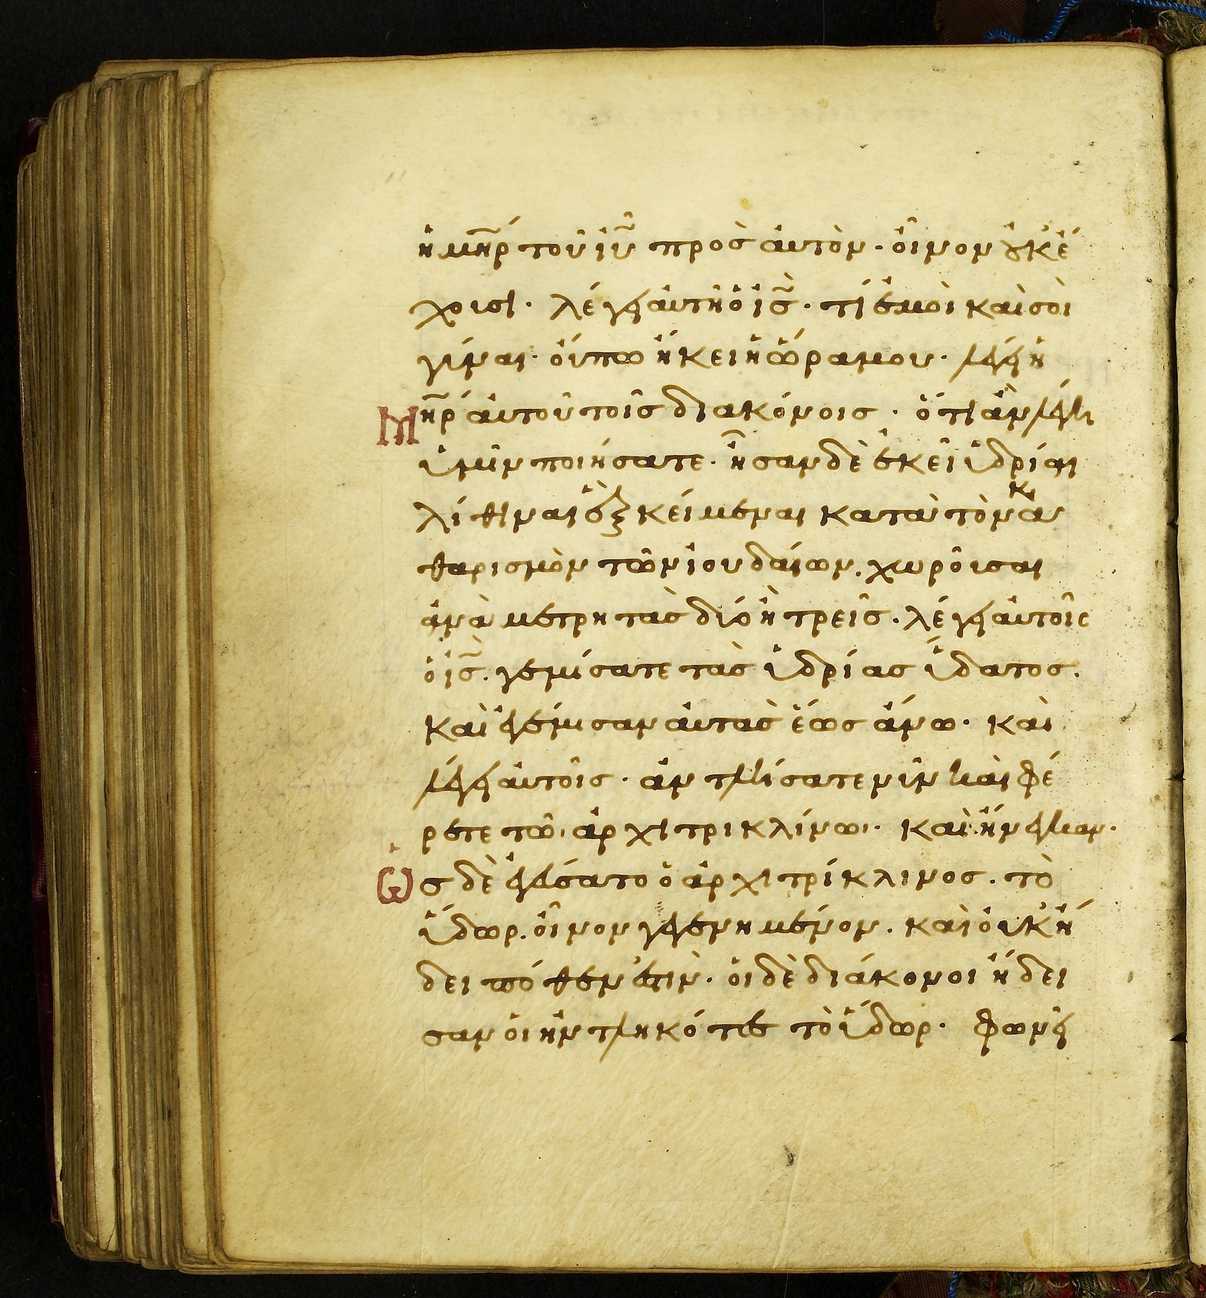 ἡ μη̅ρ τοῦ ιυ̅ πρὸς αὐτὸν· οἶνον οὐκ ἔ
χουσι· λέγει αὐτῆ ὁ ις̅· τί ἐμοὶ καὶ σοὶ
γύναι· οὔπω ἥκει ἡ ὥρα μου· λέγει ἡ
μη̅ρ αὐτοῦ τοῖς διακόνοις· ὅτι ἂν λέγη
ὑμῖν ποιήσατε· ἦσαν δὲ ἐκεῖ ὑδρίαι
λίθιναι ἓξ κείμεναι κατὰ τὸν κα
θαρισμὸν τῶν ἰουδαίων. χωροῦσαι
ἀνὰ μετρητὰς δύο ἢ τρεῖς· λέγει αὐτοῖς
ὁ ις̅. γεμίσατε τὰς ὑδρίας ὕδατος.
καὶ ἐγέμισαν αὐτὰς ἕως ἄνω· καὶ
λέγει αὐτοῖς· ἀντλήσατε νῦν καὶ φέ
ρετε τῶ ἀρχιτρικλίνω· καὶ ἤνεγκαν·
Ὡς δὲ ἐγεύσατο ὁ ἀρχιτρίκλινος· τὸ
ὕδωρ. οἶνον γεγενημένον. καὶ οὐκ ἤ
δει πόθεν ἐστὶν· οἱ δὲ διάκονοι ἤδει
σαν οἱ ἠντληκότες τὸ ὕδωρ· φωνεῖ